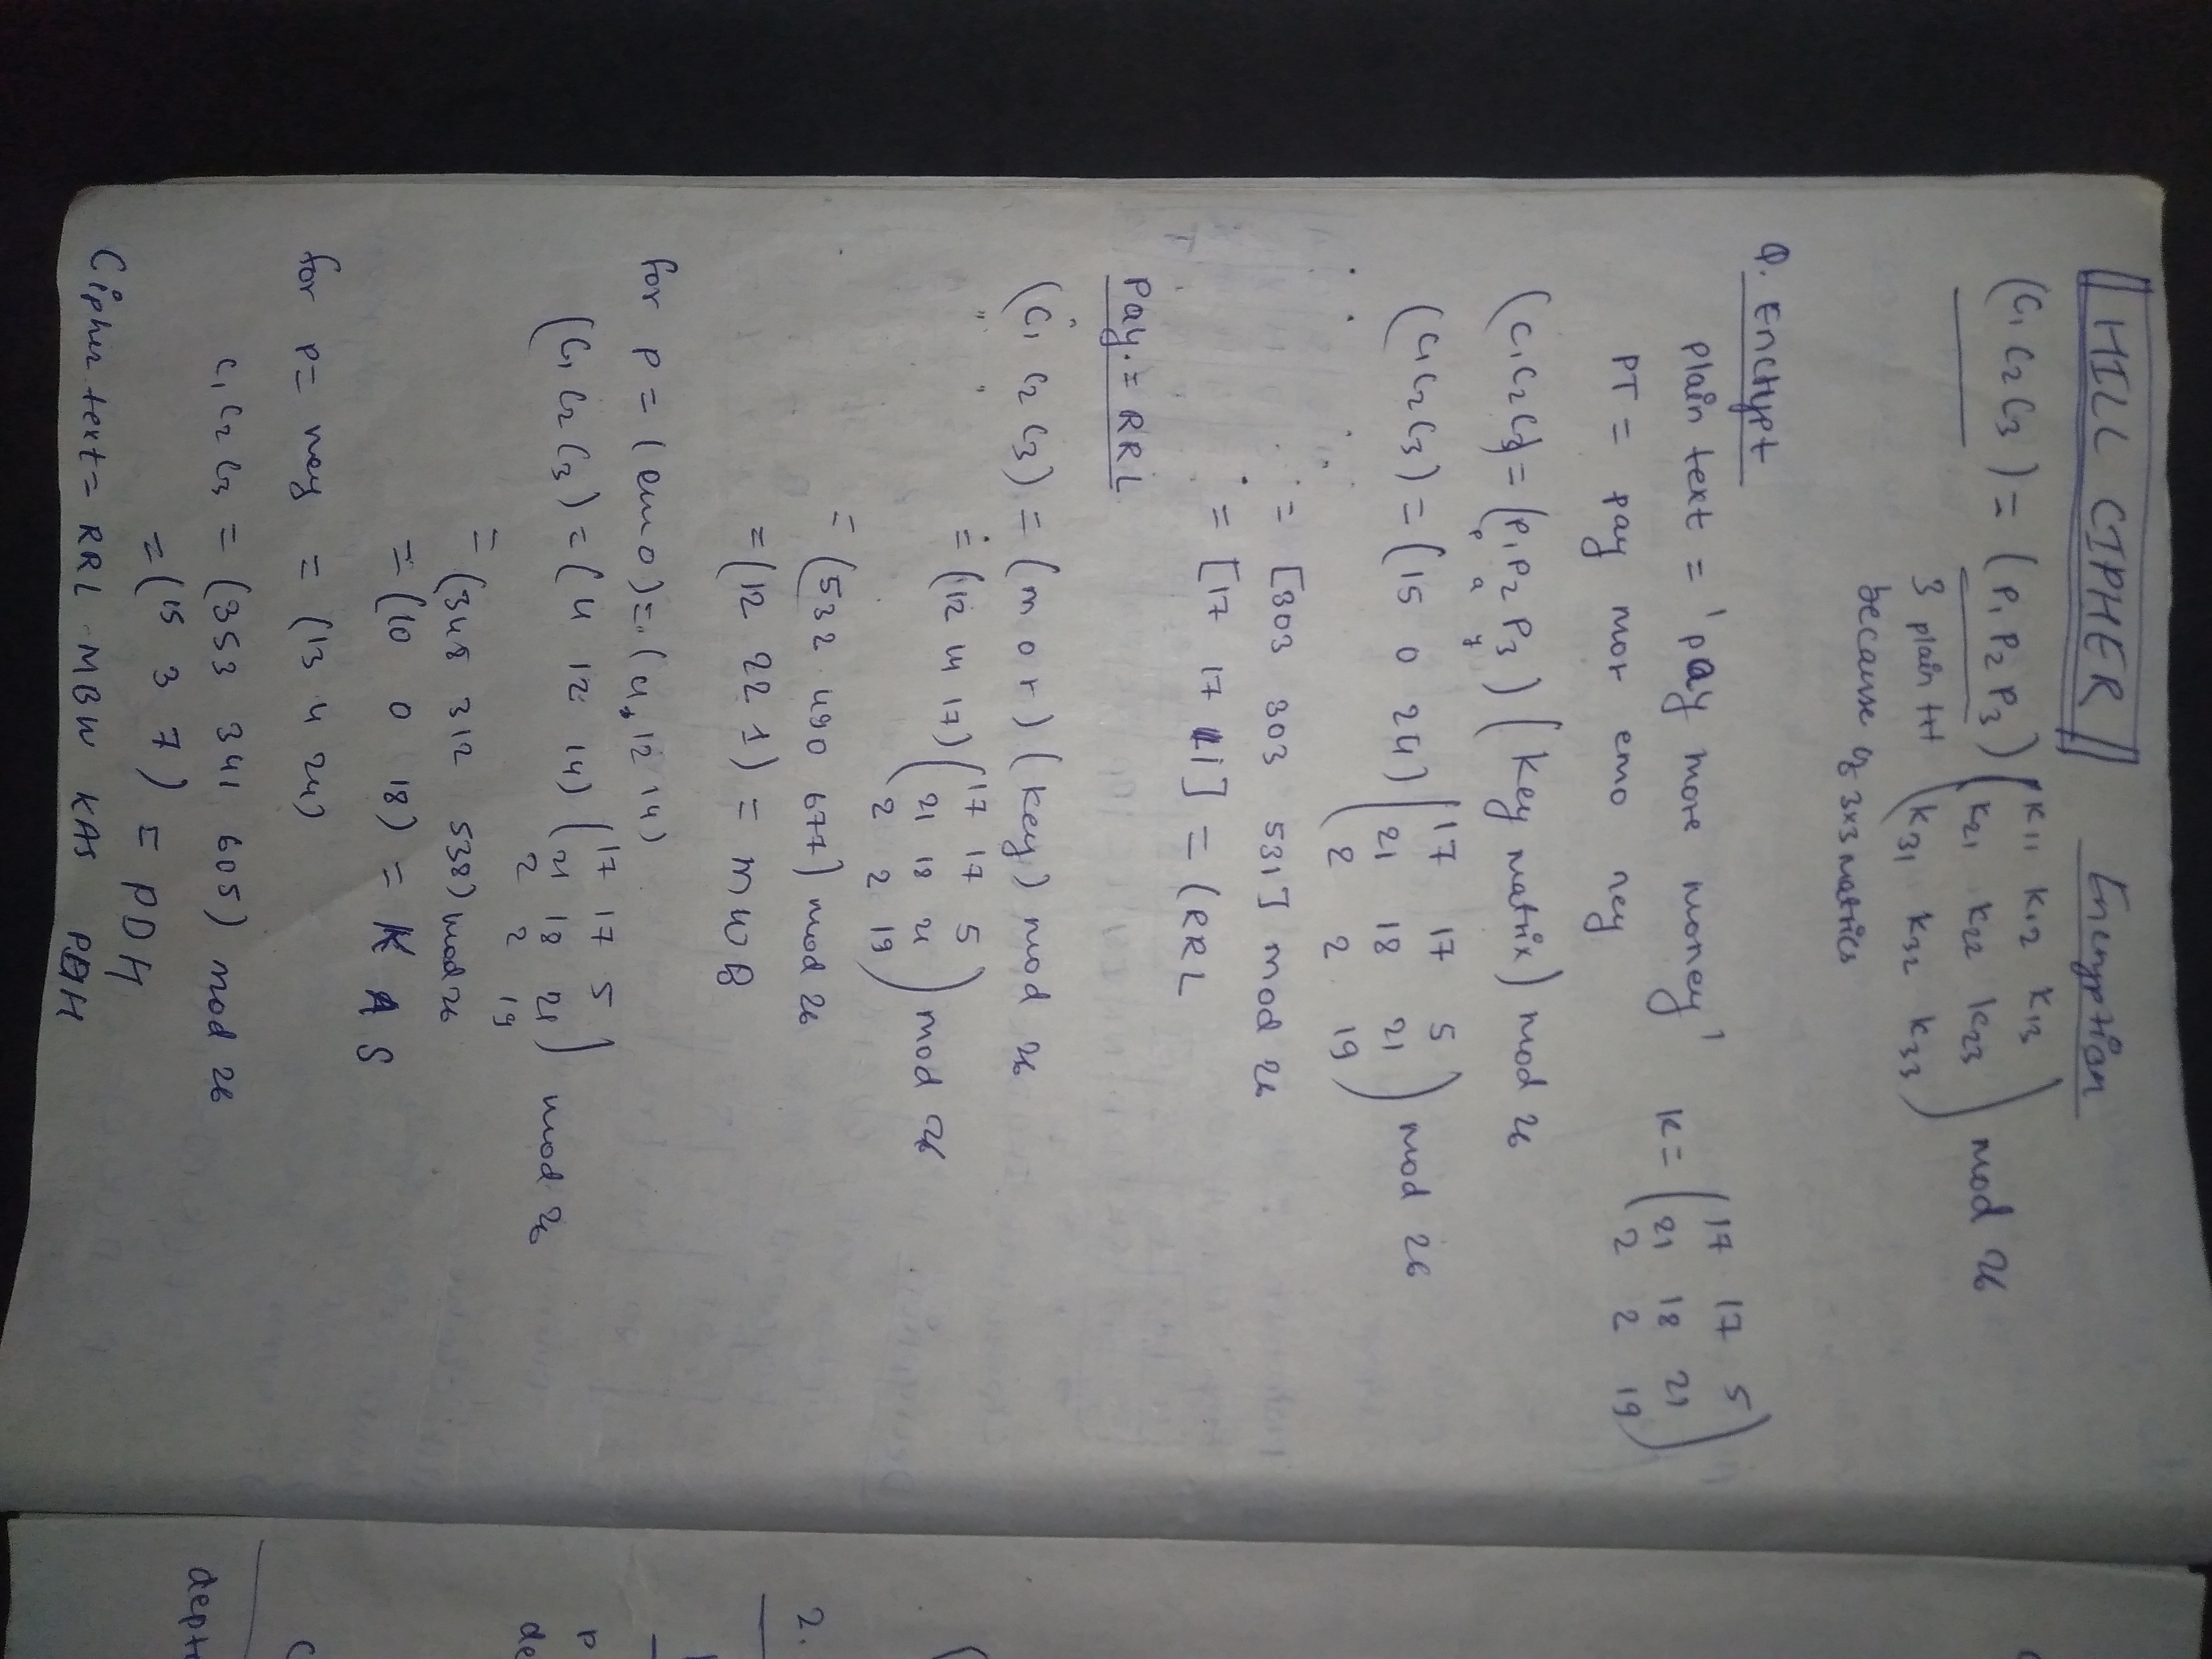 HILL CIPHER Encryption
(C1 C2 C3) = (P1 P2 P3) (K11 K12 K13
K21 K22 K23
K31 K32 K33) mod 26
3 plain tt
because of 3x3 matrics
Q. Encrypt
plain text = 'pay more money' K = (17 17 5
21 18 21
2 2 19)
PT = pay mor emo ney
(C1 C2 C3) = (P1 P2 P3) (Key matrix) mod 26
p a y
(C1 C2 C3) = (15 0 24) (17 17 5
21 18 21
2 2 19) mod 26
= [303 303 531] mod 26
= [17 17 11] = (RRL
Pay. = RRL
(C1 C2 C3) = (m o r) (key) mod 26
= (12 4 17) (17 17 5
21 18 21
2 2 19) mod 26
= (532 490 677) mod 26
= (12 22 1) = m w B
for P = (emo) = (4, 12 14)
(C1 C2 C3) = (4 12 14) (17 17 5
21 18 21
2 2 19) mod 26
= (348 312 538) mod 26
= (10 0 18) = K A S
for P = ney = (13 4 24)
C1 C2 C3 = (353 341 605) mod 26
= (15 3 7) = PDH
Cipher text = RRL MBW KAS PDH
2.
P
de
C